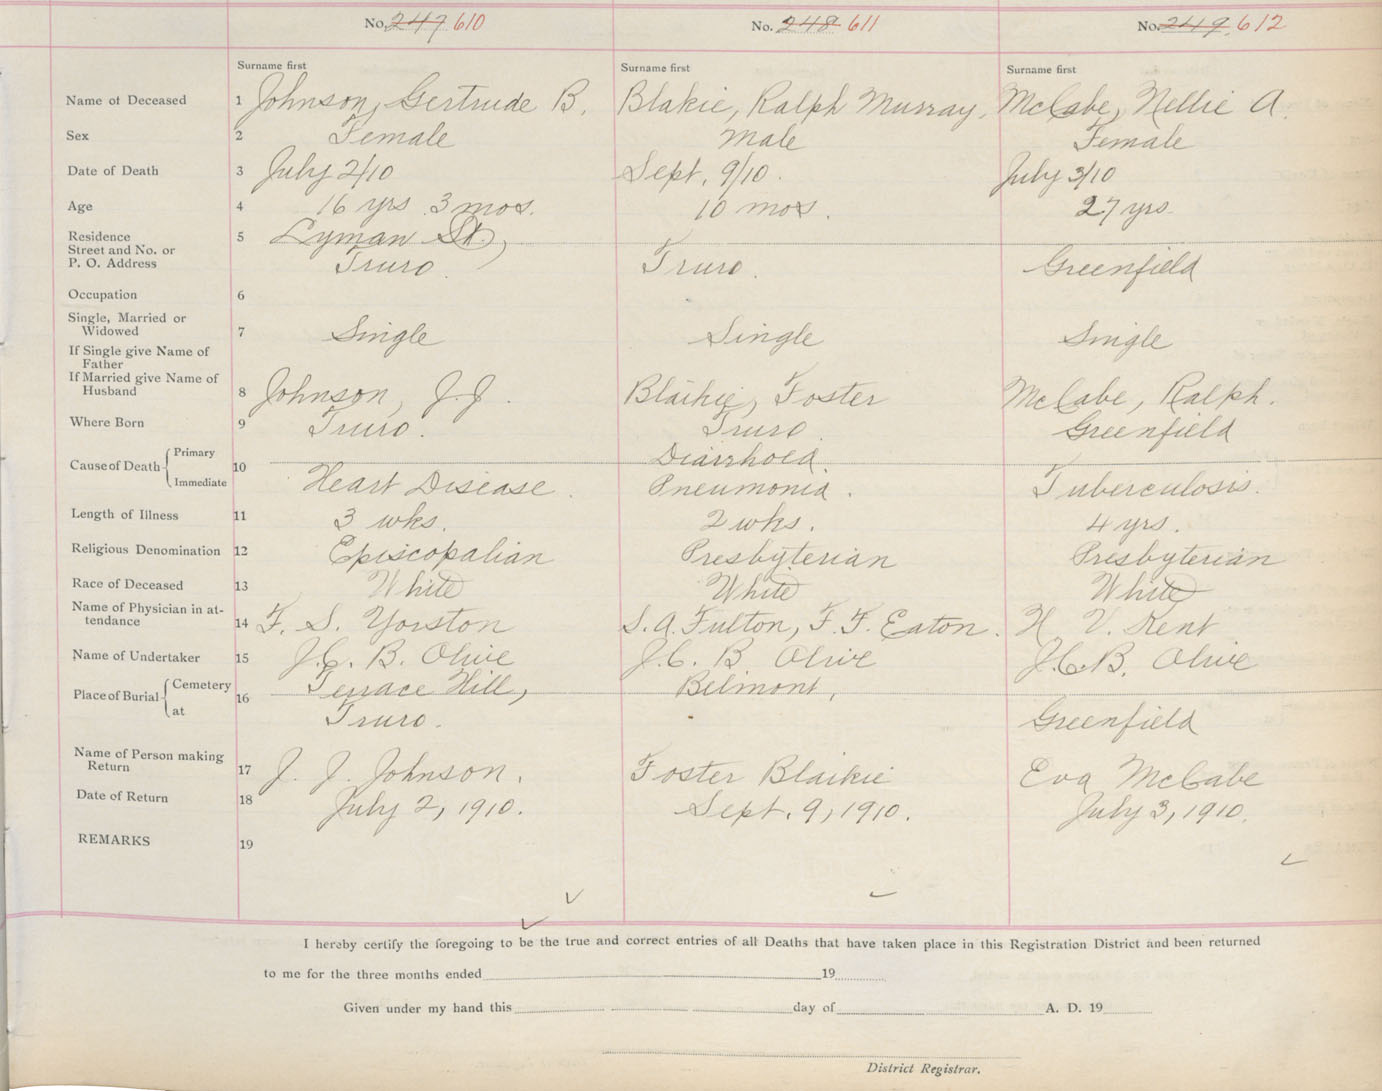 No. 247 610 No. 248 611 No. 249 612
Surname first Surname first Surname first
Name of Deceased 1 Johnson, Gertrude B. Blakie, Ralph Murray. McCabe, Nellie A.
Sex 2 Female Male Female
Date of Death 3 July 2/10 Sept. 9/10. July 3/10
Age 4 16 yrs 3 mos. 10 mos. 27 yrs.
Residence 5 Lyman St.,
Street and No. or
P. O. Address Truro. Truro. Greenfield
Occupation 6
Single, Married or
Widowed 7 Single Single Single
If Single give Name of
Father
If Married give Name of
Husband 8 Johnson, J. J. Blaikie, Foster McCabe, Ralph.
Where Born 9 Truro. Truro Greenfield
Cause of Death Primary 10 Diarrhoea.
Immediate Heart Disease. Pneumonia. Tuberculosis.
Length of Illness 11 3 wks. 2 wks. 4 yrs.
Religious Denomination 12 Episcopalian Presbyterian Presbyterian
Race of Deceased 13 White White White
Name of Physician in at-
tendance 14 F. S. Yorston S. A. Fulton, F. F. Eaton. H. V. Kent
Name of Undertaker 15 J. C. B. Olive J. C. B. Olive J. C. B. Olive
Place of Burial Cemetery 16 Terrace Hill, Belmont,
at Truro. Greenfield
Name of Person making
Return 17 J. J. Johnson. Foster Blaikie Eva McCabe
Date of Return 18 July 2, 1910. Sept. 9, 1910. July 3, 1910.
REMARKS 19
I hereby certify the foregoing to be the true and correct entries of all Deaths that have taken place in this Registration District and been returned
to me for the three months ended 19
Given under my hand this day of A. D. 19
District Registrar.